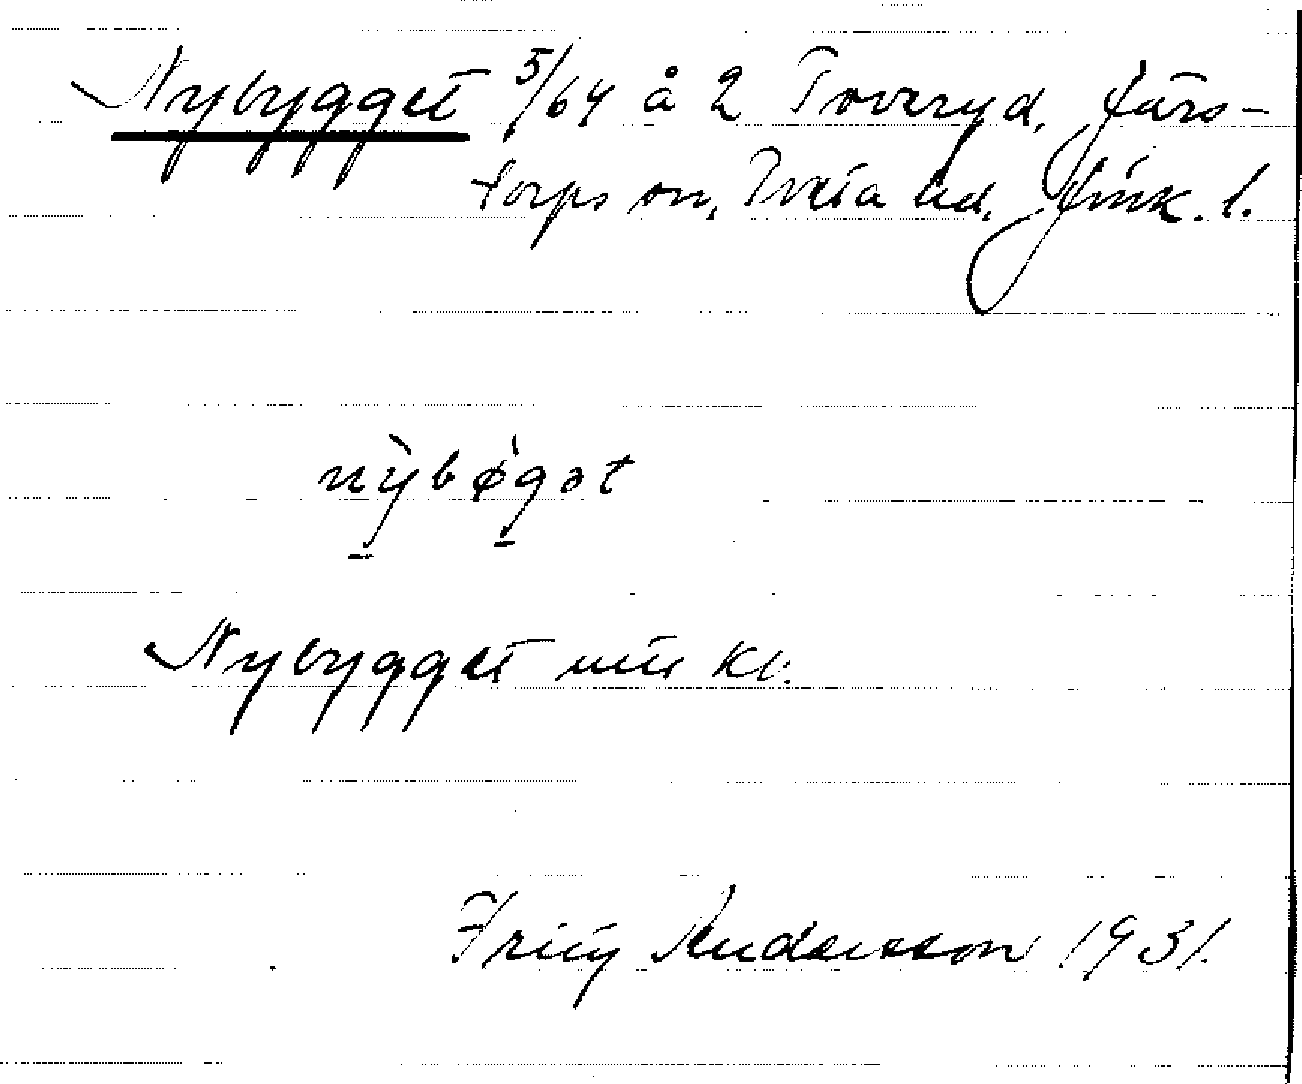 Nybygget 5/64 å 2 Toveryd, Järs-
torps sn, Tveta hd, Jönk. l.
nỳbǿgət
Nybygget mtr kb.
Fritz Andersson 1931.